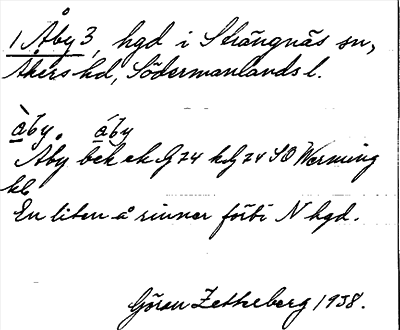 1 Åby 3, hgd i Strängnäs sn,
Åkers hd, Södermanlands l.
åby. åby
Åby bek ek G 24 h G 24 SO Werming
En liten å rinner förbi N hgd.
Göran Zetheberg 1938.